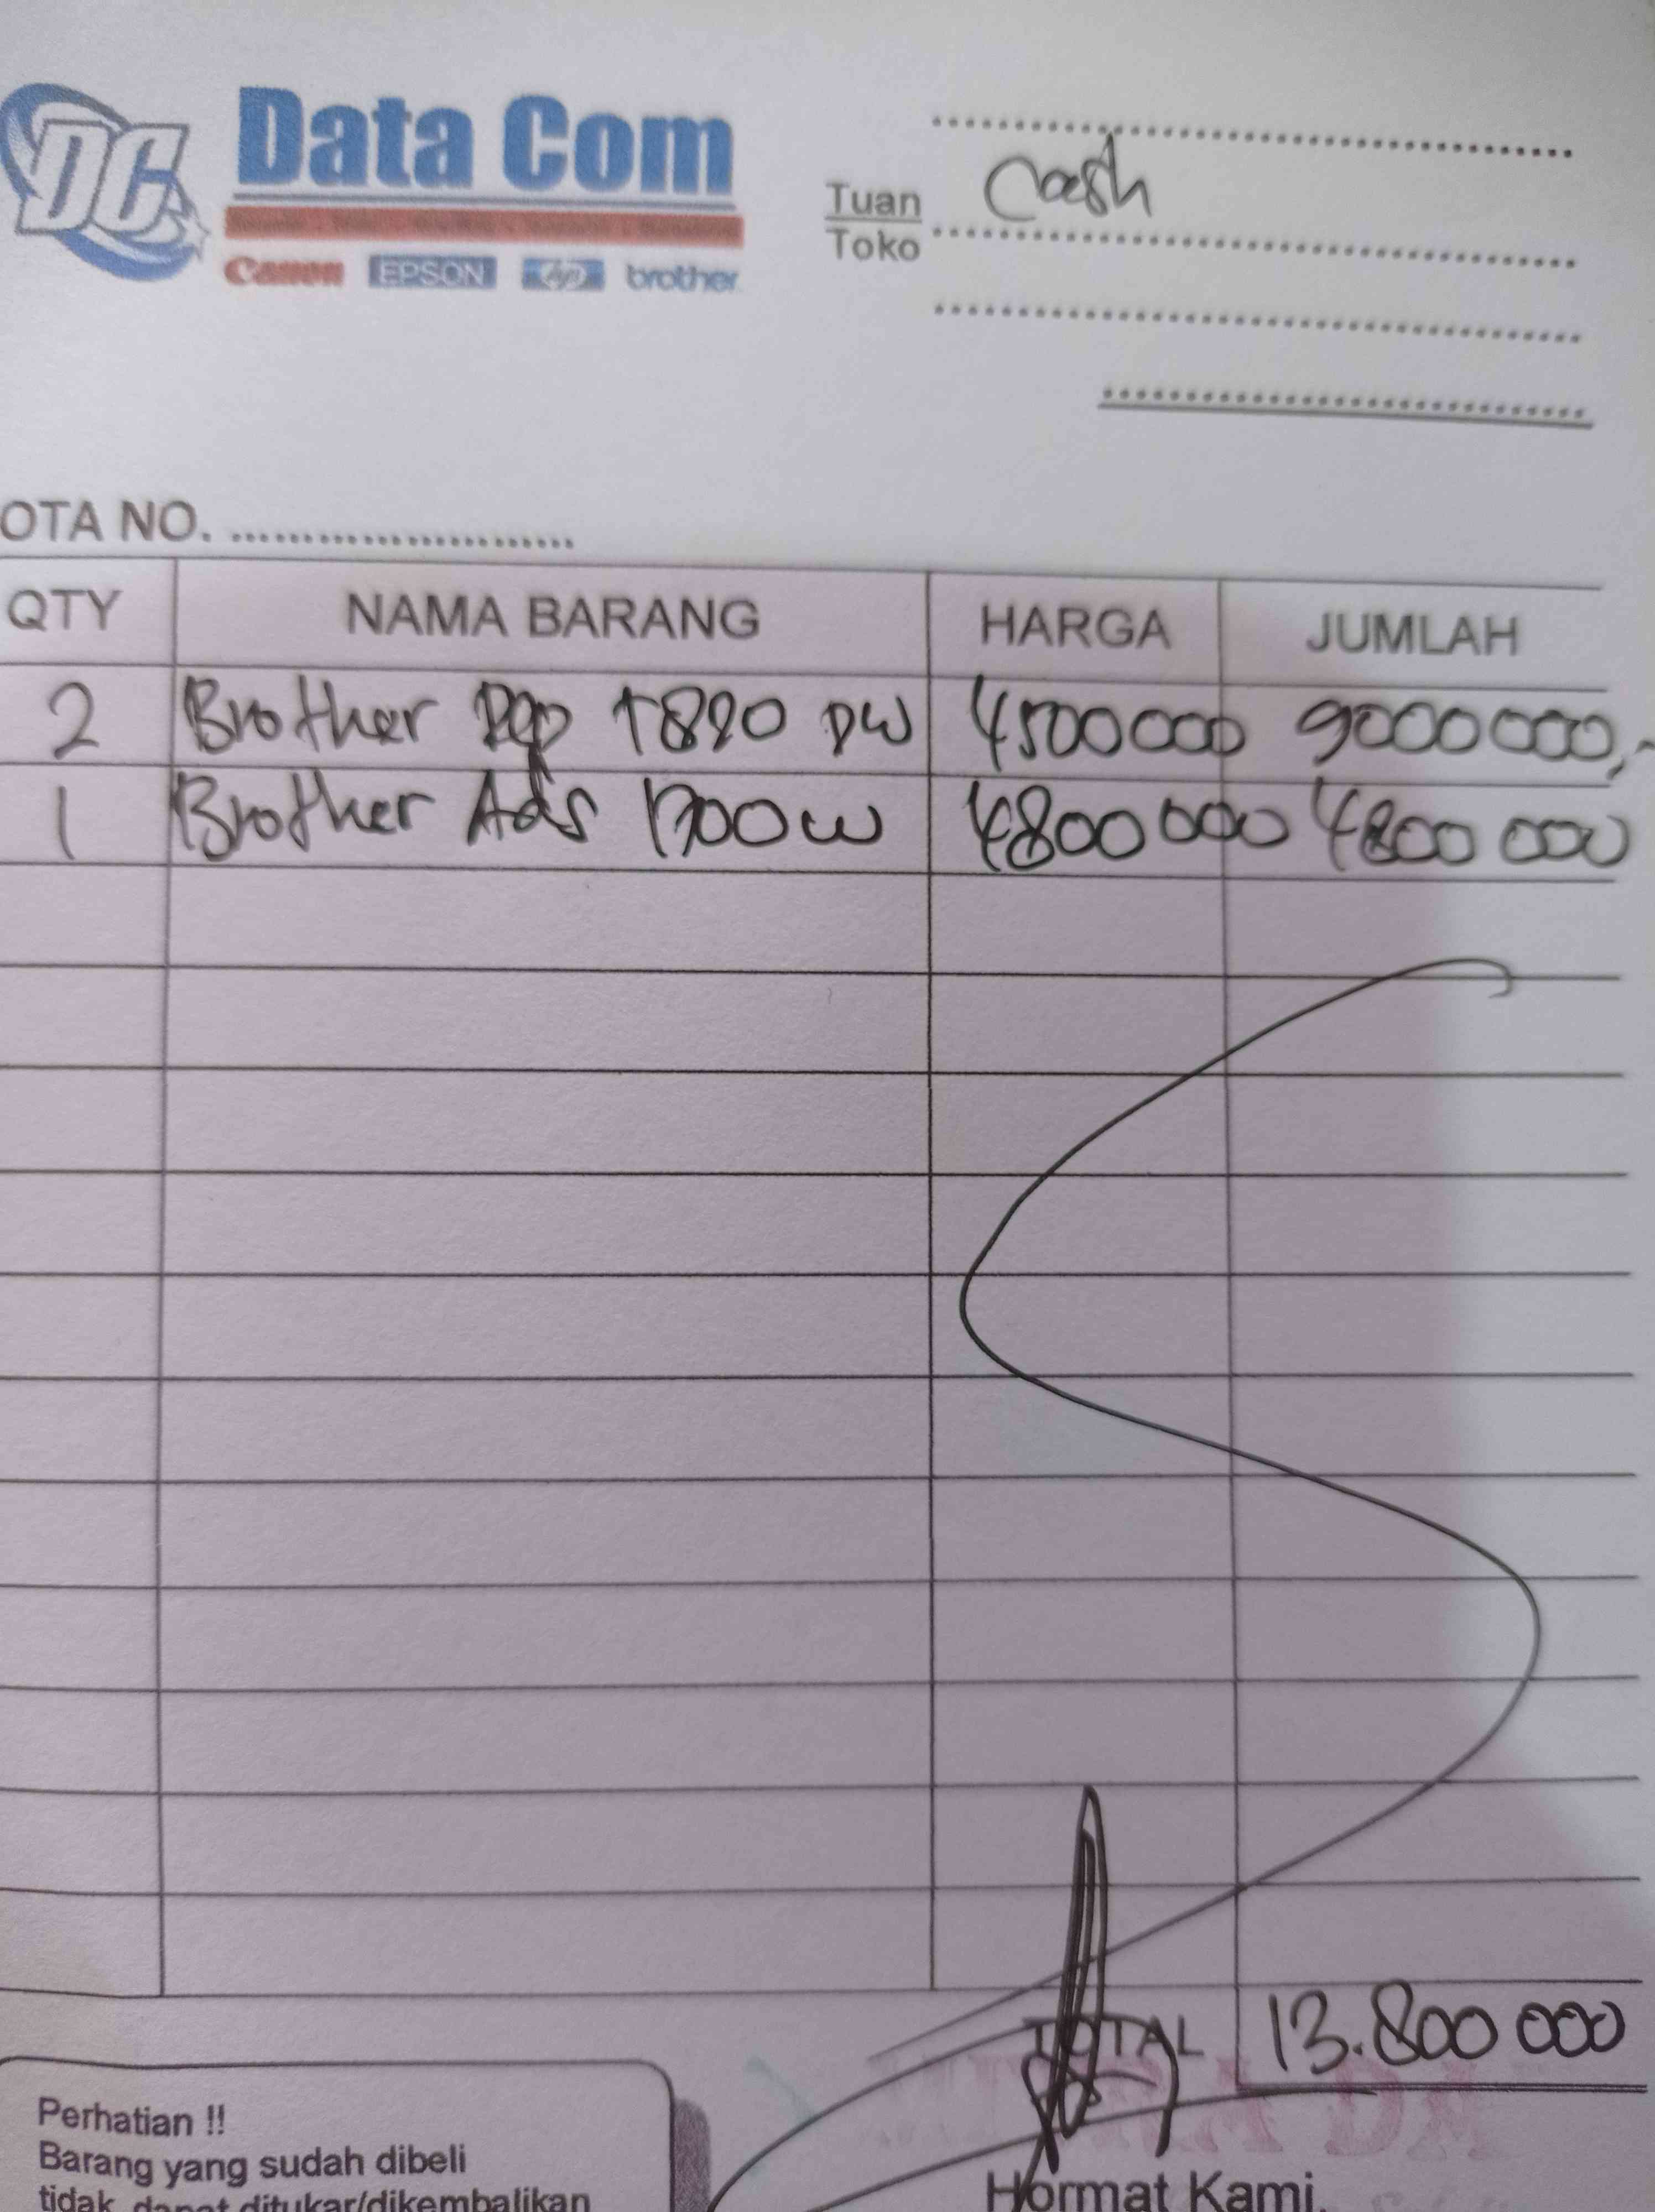 DC
Data Com
Canon EPSON hp brother
Cash
Tuan
Toko
OTA NO.
QTY NAMA BARANG HARGA JUMLAH
2 Brother Dcp T820 DW 4500000 9000000,-
1 Brother Ads 1700w 4800000 4800000
TOTAL 13.800 000
Perhatian !!
Barang yang sudah dibeli
tidak dapat ditukar/dikembalikan
Hormat Kami,